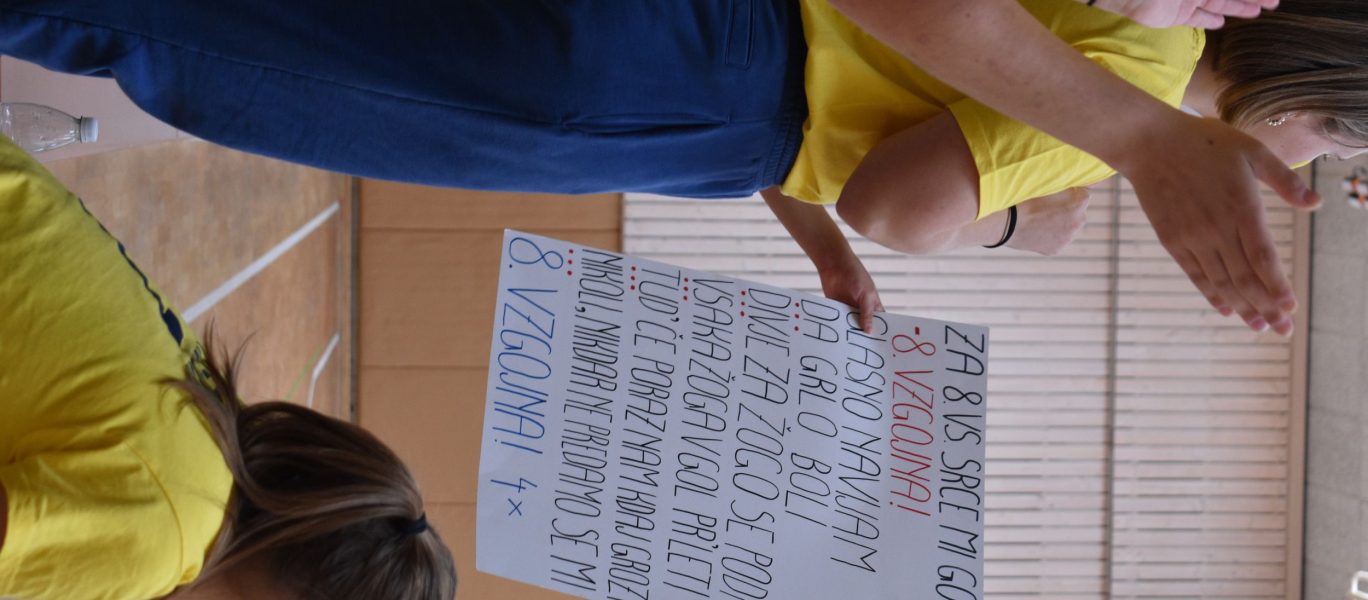 ZA 8 VS. SRCE MI GO
- 8. VZGOJNA!
GLASNO NAVIJAM
DA GRLO BOLI
DIVJE ZA ŽOGO SE PODI
VSAKA ŽOGA V GOL PR'LETI
TUD' ČE PORAZ NAM KDAJ GROZI
NIKOLI, NIKDAR NE PREDAMO SE MI
8. VZGOJNA! 4x